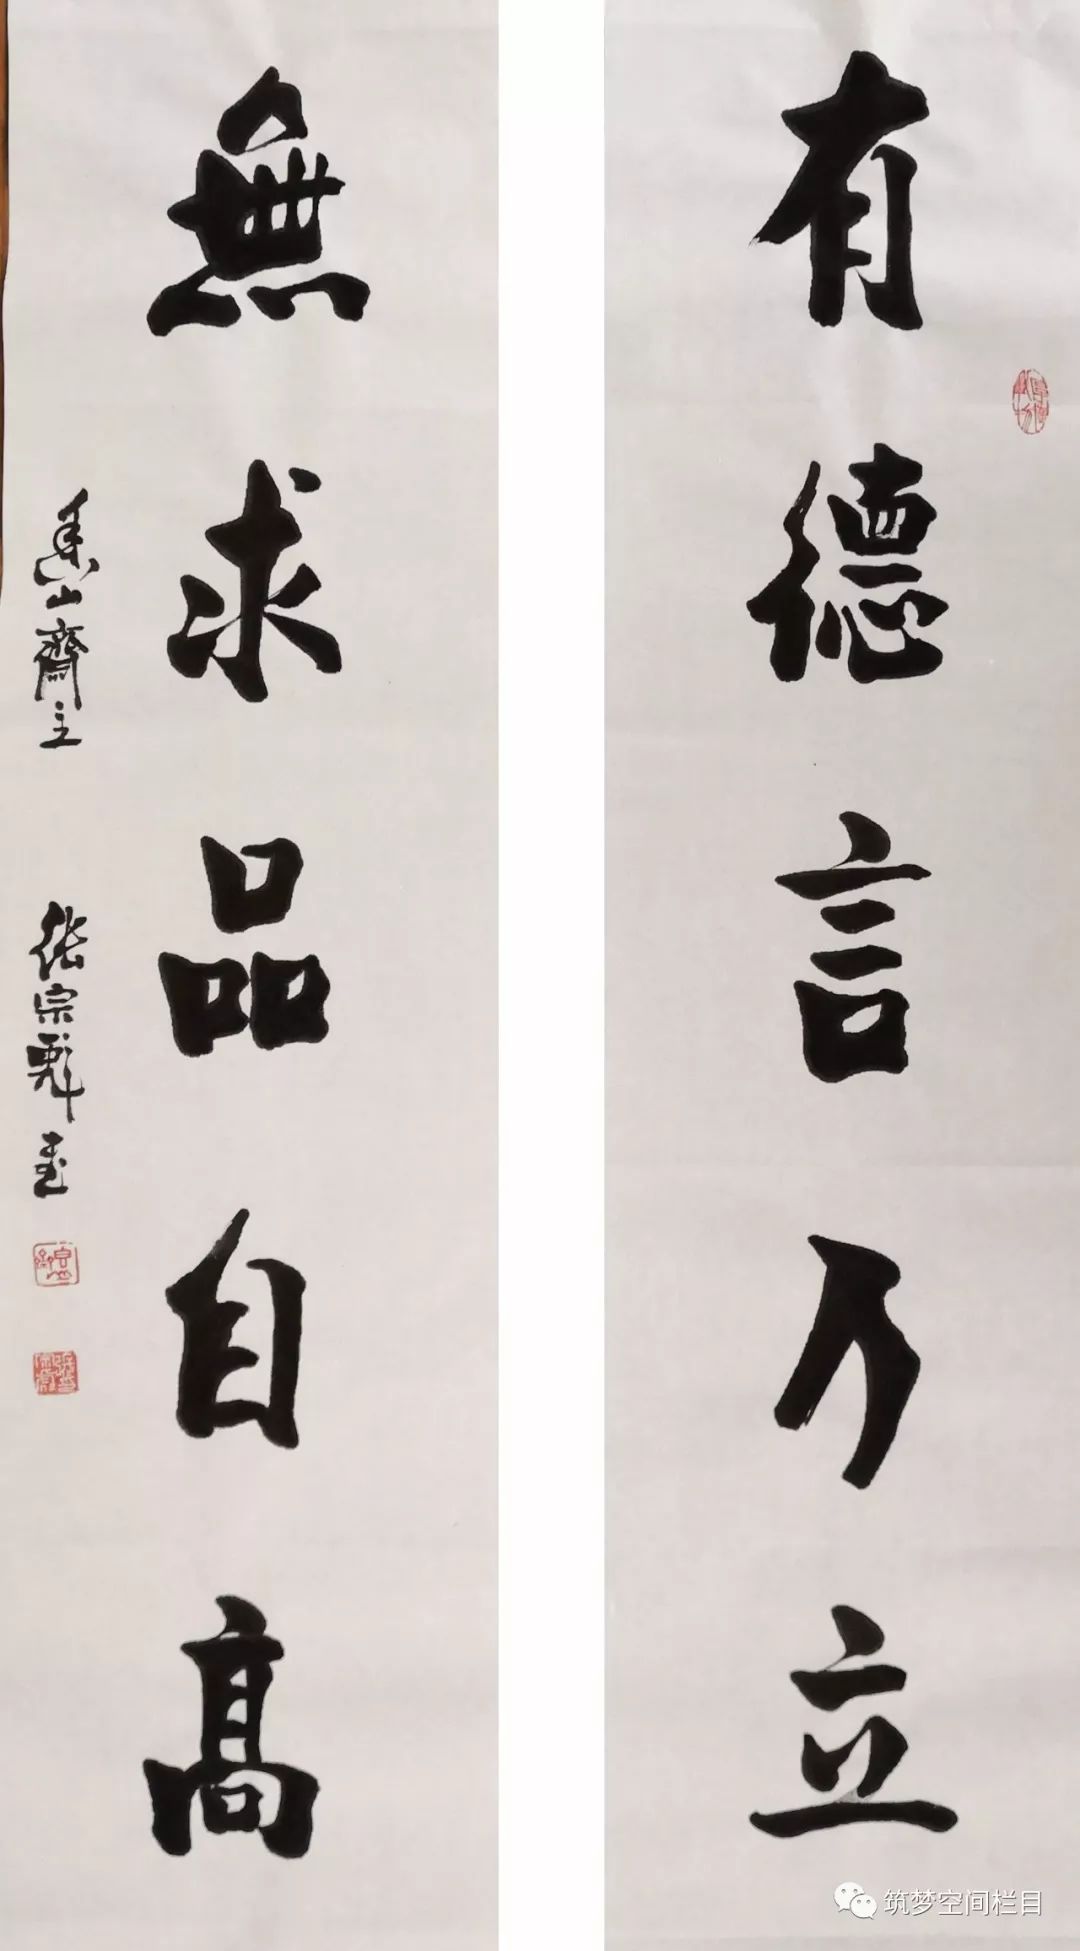 有德言乃立
無求品自高
山齋主
張宗彪書
筑梦空间栏目